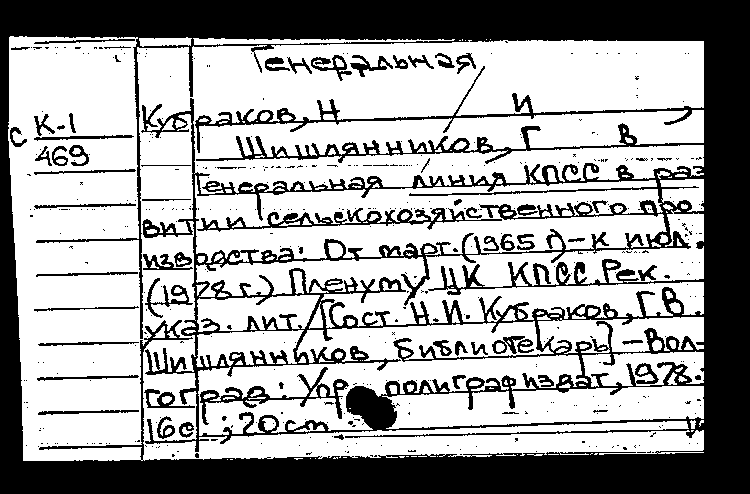 Генеральная
Кубраков, Н И
с К-1
Шишлянников, Г В
469
Генеральная линия КПСС в раз
витии сельскохозяйственного про
изводства: От март. (1965 г) – к июл.
(1978 г.) Пленуму ЦК КПСС. Рек.
указ. лит. [Сост. Н.И. Кубраков, Г.В.
Шишлянников, библиотекарь] – Вол-
гоград: Упр полиграфиздат, 1978.
16с.; 20 cm